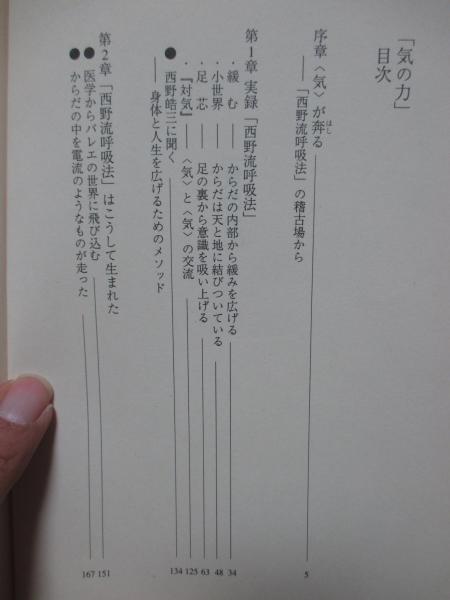 「気の力」
目次
序章〈気〉が奔る
はし
——「西野流呼吸法」の稽古場から 5
第1章 実録「西野流呼吸法」
・緩む —— からだの内部から緩みを広げる 34
・小世界 —— からだは天と地に結びついている 48
・足芯 —— 足の裏から意識を吸い上げる 63
・『対気』 —— 〈気〉と〈気〉の交流 125
●西野皓三に聞く 134
——身体と人生を広げるためのメソッド
第2章「西野流呼吸法」はこうして生まれた
●医学からバレエの世界に飛び込む 151
●からだの中を電流のようなものが走った 167